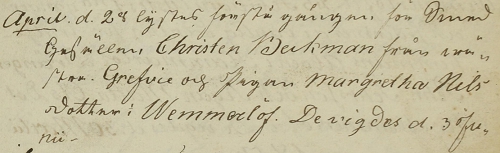 April. d. 28 lystes första gången för Smed
Gesällen, Christen Beckman från wän-
stra. Grefvie och Pigan Margretha Nils
dotter i Wemmerlöf. De vigdes d. 3 öfre
nii-